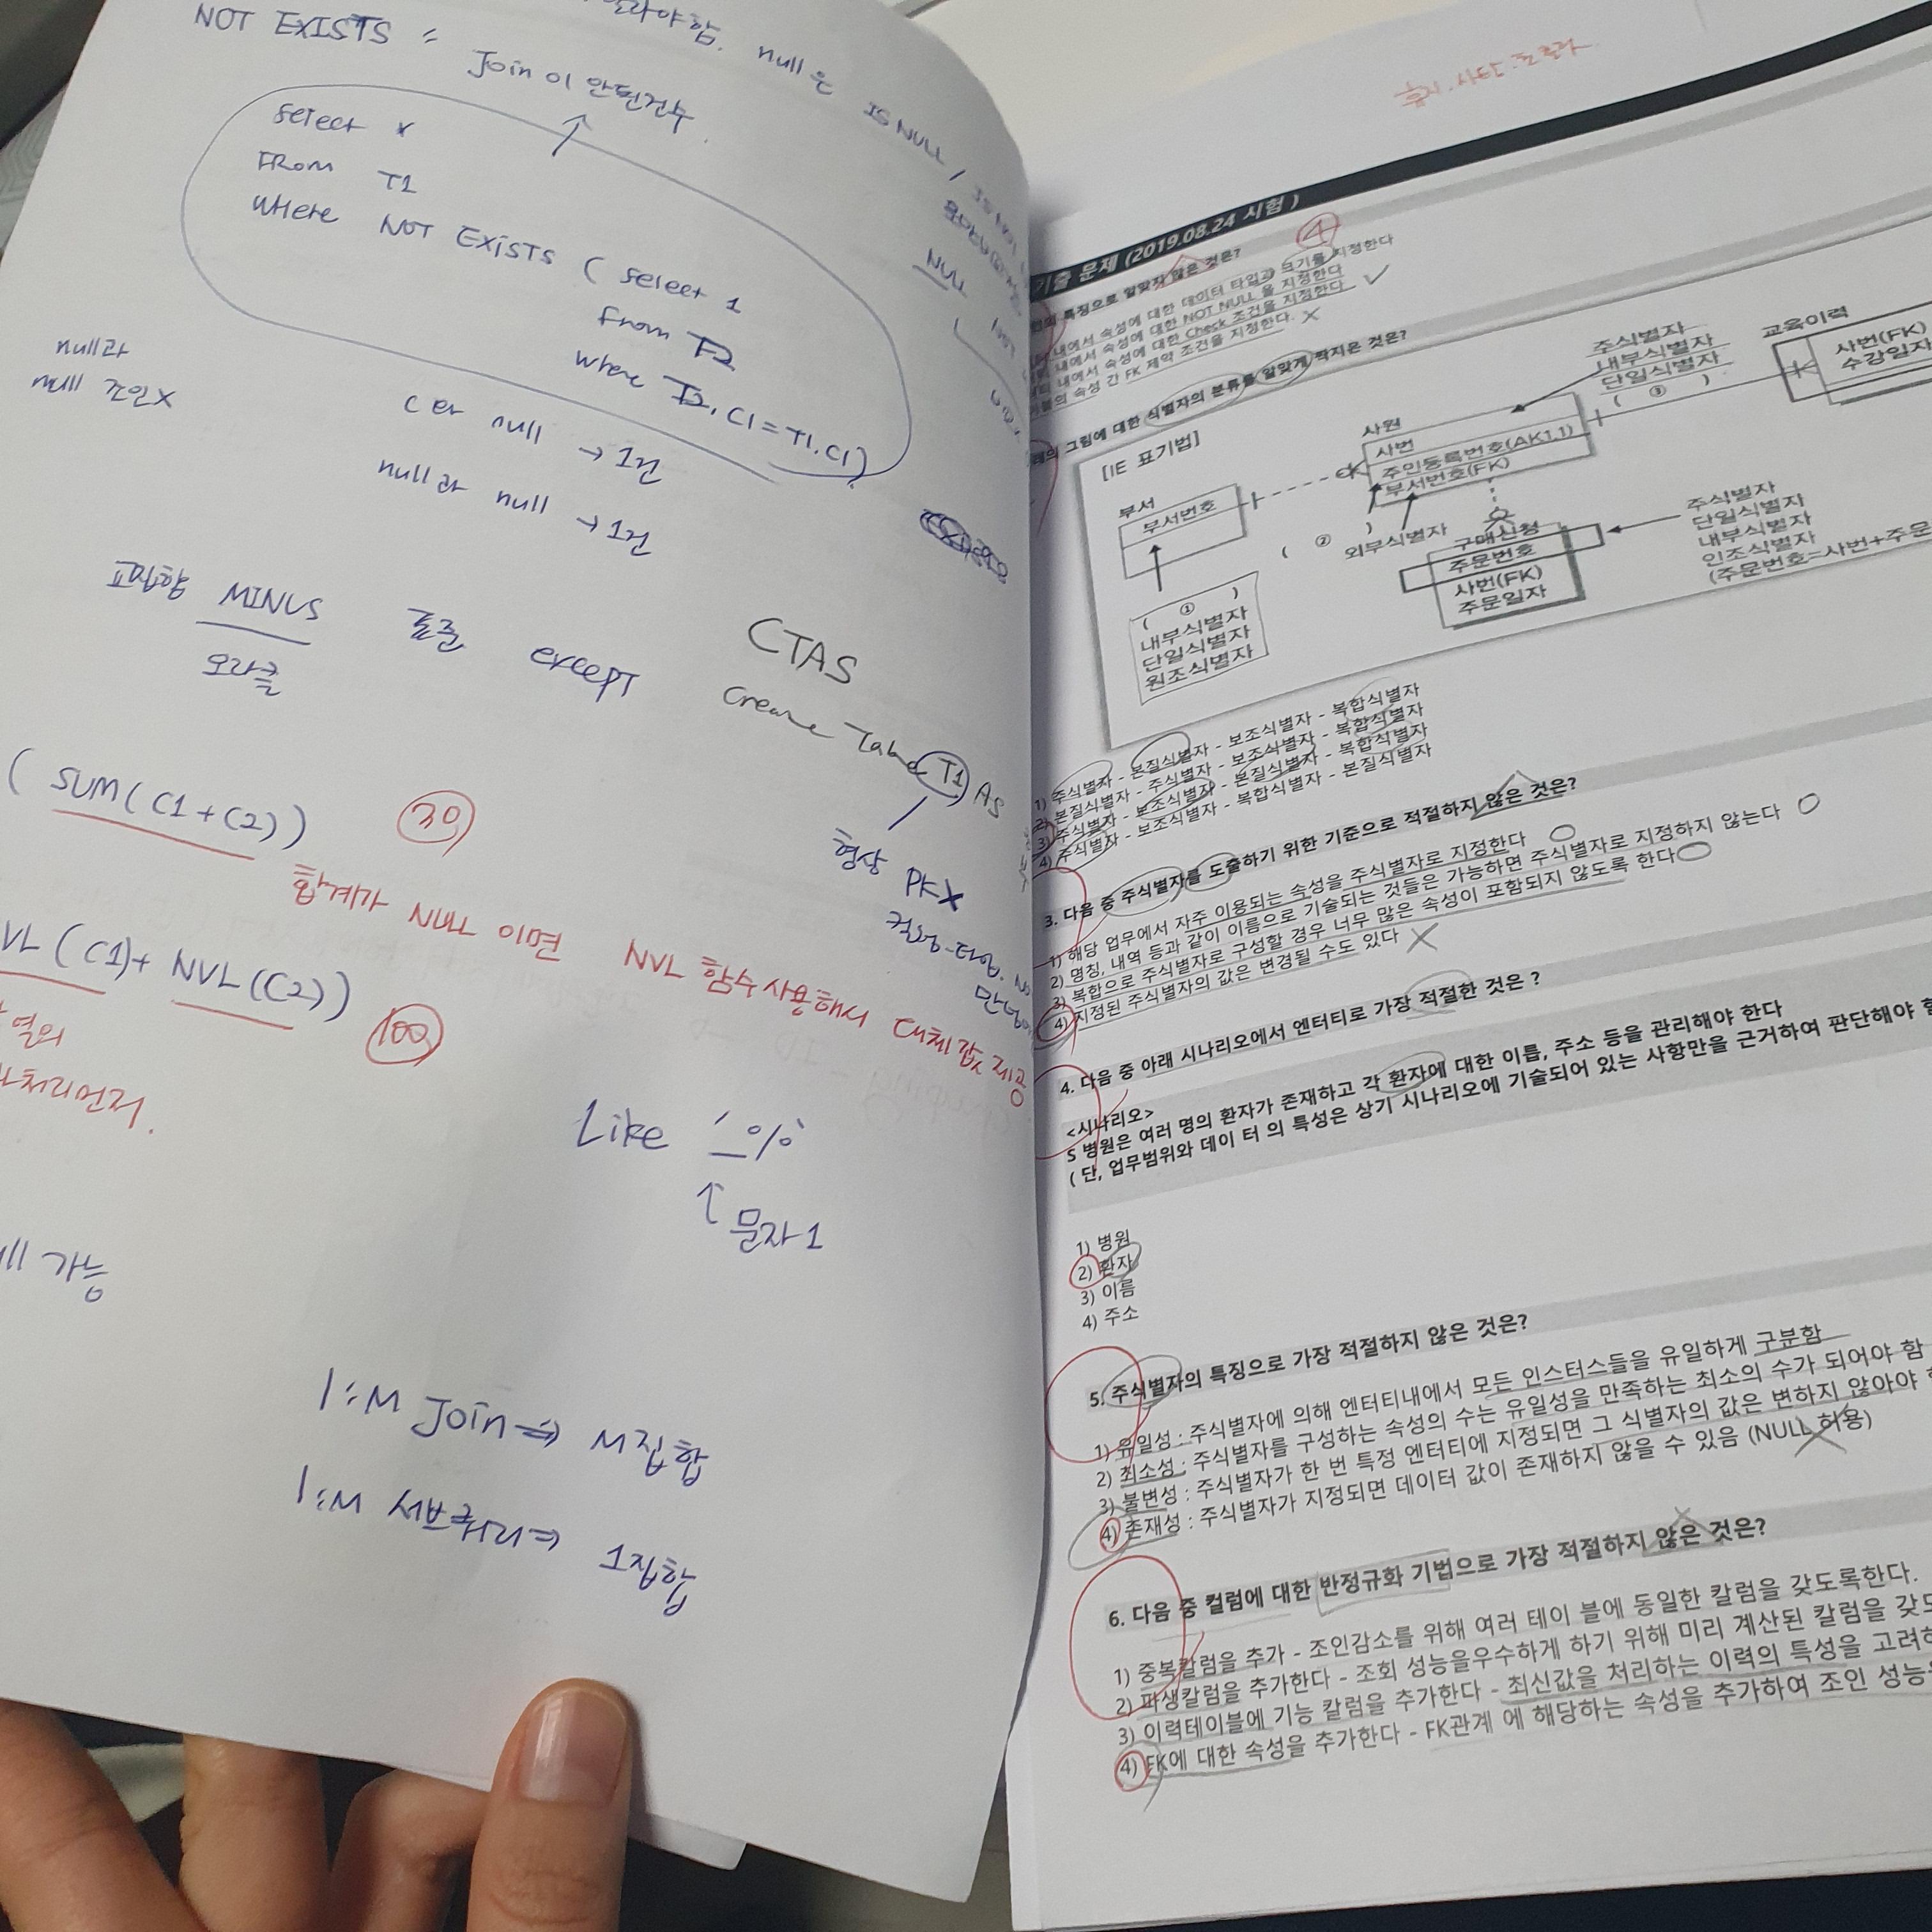 NOT EXISTS =
Join이 안된건수.
null은 IS NULL /
select *
FROM T1
WHERE NOT EXISTS ( select 1
From T2
where T2.C1 = T1.C1 )
null과
null 조인X
C er null → 1건
null과 null → 1건
교집합 MINUS 표준 except
오라클
CTAS
Create Table T1 AS
형상 PK X
( SUM( C1 + C2 ) ) 30
합계가 NULL 이면 NVL 함수사용해서 대체값 제공
VL (C1)+ NVL(C2)) 100
열의
처리먼저.
Like '_%'
↑ 문자1
가능
1:M Join ⇒ M집합
1:M 서브쿼리 ⇒ 1집합
기출 문제 (2019.08.24 시험 )
특징으로 알맞지 않은 것은? ④
내에서 속성에 대한 데이터 타입과 크기를 지정한다
내에서 속성에 대한 NOT NULL 을 지정한다
내에서 속성에 대한 Check 조건을 지정한다
속성 간 FK 제약 조건을 지정한다. X
그림에 대한 식별자의 분류를 알맞게 짝지은 것은?
[IE 표기법]
부서
부서번호
( ① )
내부식별자
단일식별자
원조식별자
사원
사번
주민등록번호(AK1,1)
부서번호(FK)
( ② )
외부식별자
주식별자
내부식별자
단일식별자
( ③ )
교육이력
사번(FK)
수강일자
구매신청
주문번호
사번(FK)
주문일자
주식별자
단일식별자
내부식별자
인조식별자
(주문번호=사번+주문
1) 주식별자 - 본질식별자 - 보조식별자 - 복합식별자
2) 본질식별자 - 주식별자 - 보조식별자 - 복합식별자
3) 주식별자 - 보조식별자 - 본질식별자 - 복합식별자
4) 주식별자 - 보조식별자 - 복합식별자 - 본질식별자
3. 다음 중 주식별자를 도출하기 위한 기준으로 적절하지 않은 것은?
1) 해당 업무에서 자주 이용되는 속성을 주식별자로 지정한다
2) 명칭, 내역 등과 같이 이름으로 기술되는 것들은 가능하면 주식별자로 지정하지 않는다
3) 복합으로 주식별자로 구성할 경우 너무 많은 속성이 포함되지 않도록 한다
4) 지정된 주식별자의 값은 변경될 수도 있다 X
4. 다음 중 아래 시나리오에서 엔터티로 가장 적절한 것은 ?
<시나리오>
S 병원은 여러 명의 환자가 존재하고 각 환자에 대한 이름, 주소 등을 관리해야 한다
( 단, 업무범위와 데이 터 의 특성은 상기 시나리오에 기술되어 있는 사항만을 근거하여 판단해야
1) 병원
2) 환자
3) 이름
4) 주소
5. 주식별자의 특징으로 가장 적절하지 않은 것은?
1) 유일성 : 주식별자에 의해 엔터티내에서 모든 인스터스들을 유일하게 구분함
2) 최소성 : 주식별자를 구성하는 속성의 수는 유일성을 만족하는 최소의 수가 되어야 함
3) 불변성 : 주식별자가 한 번 특정 엔터티에 지정되면 그 식별자의 값은 변하지 않아야
4) 존재성 : 주식별자가 지정되면 데이터 값이 존재하지 않을 수 있음 (NULL 허용)
6. 다음 중 컬럼에 대한 반정규화 기법으로 가장 적절하지 않은 것은?
1) 중복칼럼을 추가 - 조인감소를 위해 여러 테이 블에 동일한 칼럼을 갖도록한다.
2) 파생칼럼을 추가한다 - 조회 성능을우수하게 하기 위해 미리 계산된 칼럼을
3) 이력테이블에 기능 칼럼을 추가한다 - 최신값을 처리하는 이력의 특성을
4) FK에 대한 속성을 추가한다 - FK관계 에 해당하는 속성을 추가하여 조인